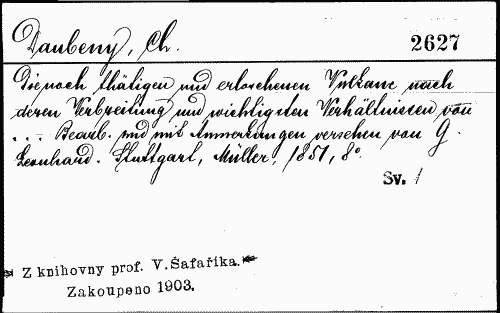 Daubeny, Ch.
2627
Die noch thätigen und erloschenen Vulkane nach
deren Verbreitung und wichtigsten Verhältnissen von
... Bearb. und mit Anmerkungen versehen von G.
Leonhard. Stuttgart, Müller, 1851, 8°
Sv. 1
Z knihovny prof. V. Šafaříka.
Zakoupeno 1903.